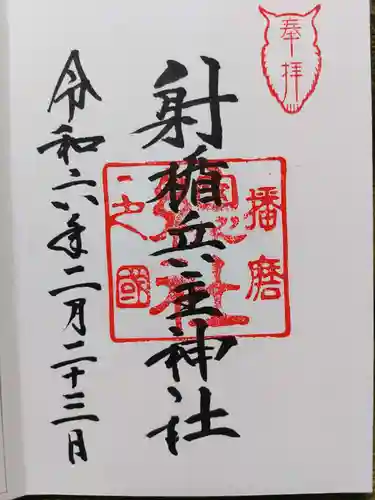 奉拝
播磨
国総社
一之國
射楯兵主神社
令和六年二月二十三日